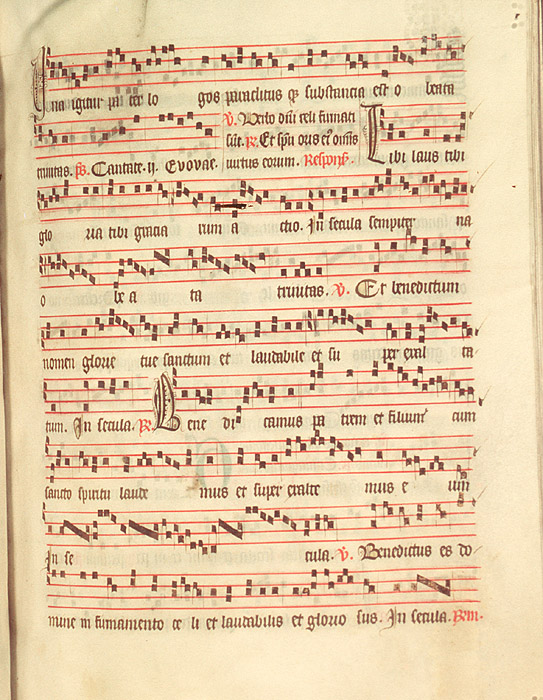 Una igitur pa ter lo gos paraclitus q substantia est o beata
V. Verbo dni celi firmati
sūt. R. Et spu oris eius ois
trinitas. ps. Cantate. ij. Evovae. uirtus eorum. Respons. Tibi laus tibi
glo ria tibi gratia rum a ctio. In secula sempiter na
o be a ta trinitas. V. Et benedictum
nomen glorie tue sanctum et laudabile et su per exal ta
tum. In secula. R. Bene di camus pa trem et filium cum
sancto spiritu laude mus et super exalte mus e um
In se cula. V. Benedictus es do
mine in firmamento ce li et laudabilis et glorio sus. In secula.